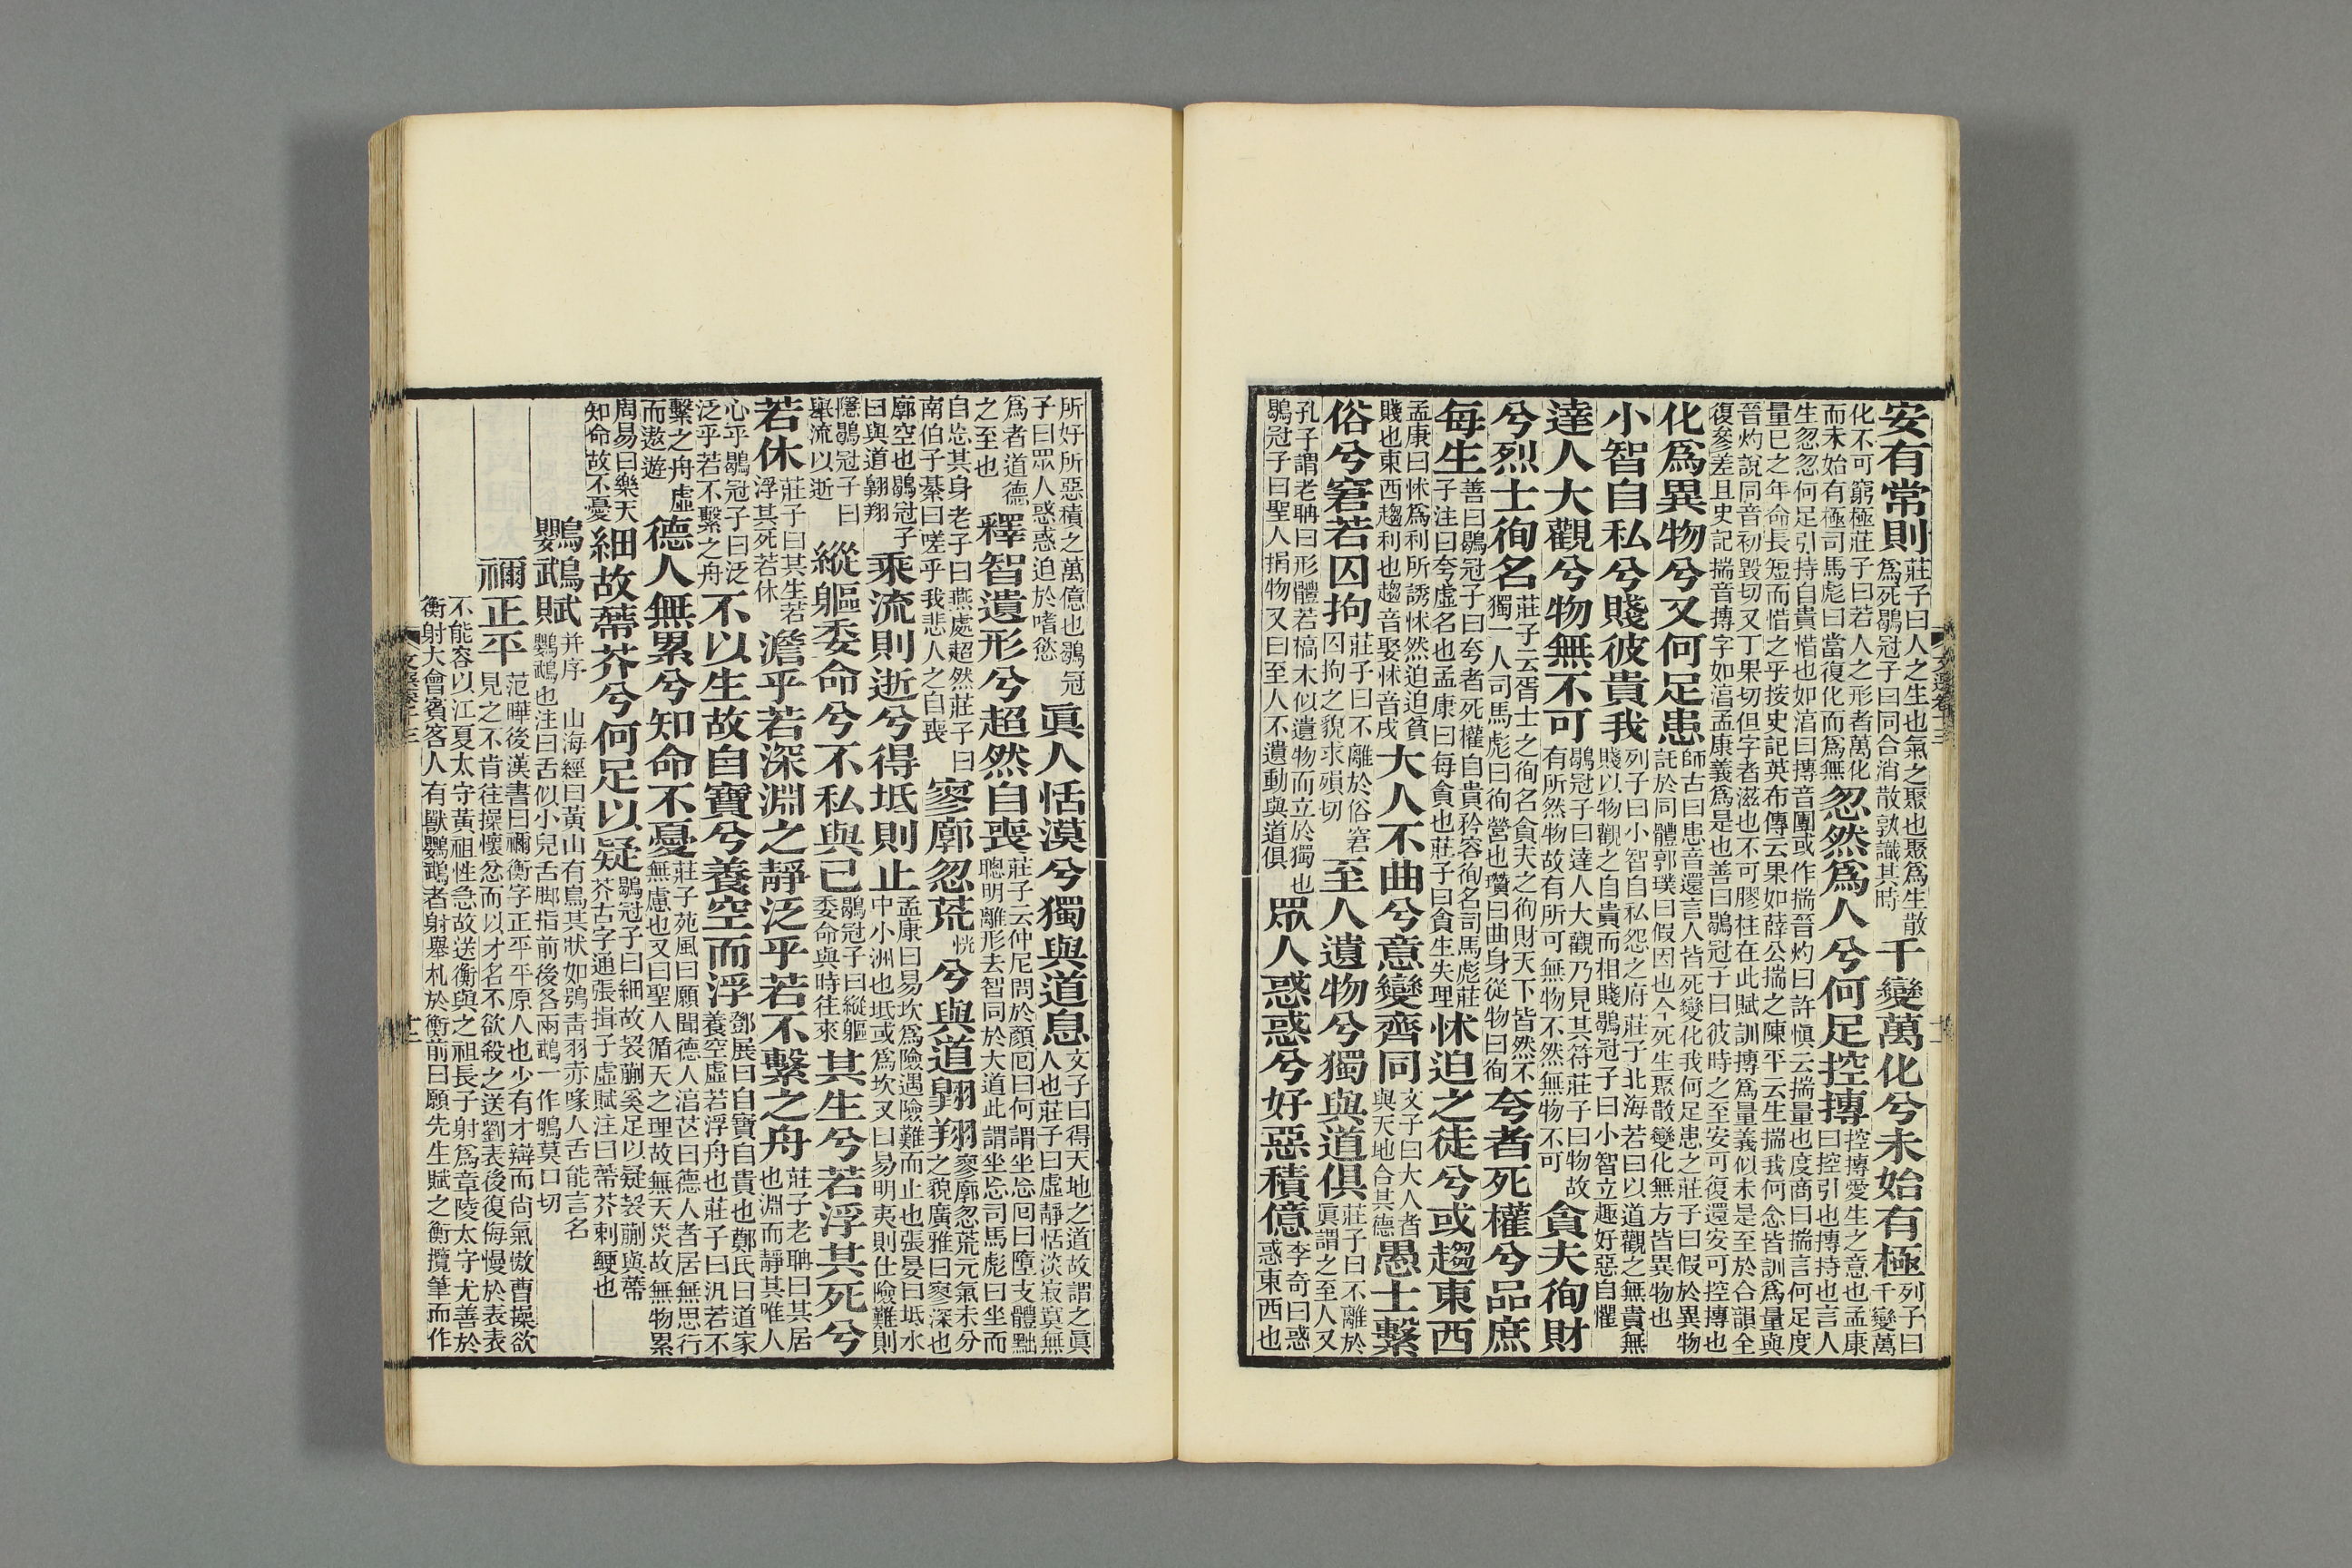 安有常則莊子曰人之生也氣之聚也聚爲生散爲死鶡冠子曰同合消散孰識其時千變萬化兮未始有極列子曰千變萬
化不可窮極莊子曰若人之形者萬化而未始有極司馬彪曰當復化而爲無忽然爲人兮何足控摶控摶愛生之意也孟康曰控引也摶持也言人
生忽忽何足引持自貴惜也如淳曰摶音團或作揣晉灼曰許慎云揣量也度商曰揣言何足度量已之年命長短而惜之乎按史記英布傳云果如薛公揣之陳平云生揣我何念皆訓爲量與
晉灼說同音初毀切又丁果切但字者滋也不可膠柱在此賦訓摶爲量義似未是至於合韻全復參差且史記揣音摶字如淳孟康義爲是也善曰鶡冠子曰彼時之至安可復還安可控摶也
化爲異物兮又何足患師古曰患音還言人皆死變化我何足患之莊子曰假於異物託於同體郭璞曰假因也今死生聚散變化無方皆異物也
小智自私兮賤彼貴我列子曰小智自私怨之府莊子北海若曰以道觀之無貴無賤以物觀之自貴而相賤鶡冠子曰小智立趣好惡自懼
達人大觀兮物無不可鶡冠子曰達人大觀乃見其符莊子曰物故有所然物故有所可無物不然無物不可貪夫徇財
兮烈士徇名莊子云胥士之徇名貪夫之徇財天下皆然不獨一人司馬彪曰徇營也瓚曰曲身從物曰徇夸者死權兮品庶
每生善曰鶡冠子曰夸者死權自貴矜容徇名司馬彪莊子注曰夸虛名也孟康曰每貪也莊子曰貪生失理怵迫之徒兮或趨東西
孟康曰怵爲利所誘怵然迫迫貧賤也東西趨利也趨音娶怵音戌大人不曲兮意變齊同文子曰大人者與天地合其德愚士繫
俗兮窘若囚拘莊子曰不離於俗窘囚拘之貌求殞切至人遺物兮獨與道俱莊子曰不離於眞謂之至人又
孔子謂老聃曰形體若槁木似遺物而立於獨也鶡冠子曰聖人捐物又曰至人不遺動與道俱眾人惑惑兮好惡積億李奇曰惑惑東西也
所好所惡積之萬億也鶡冠子曰眾人惑惑迫於嗜慾眞人恬漠兮獨與道息文子曰得天地之道故謂之眞人也莊子曰虛靜恬淡寂寞無
爲者道德之至也釋智遺形兮超然自喪莊子云仲尼問於顏回曰何謂坐忘回曰墮支體黜聰明離形去智同於大道此謂坐忘司馬彪曰坐而
自忘其身老子曰燕處超然莊子曰南伯子綦曰嗟乎我悲人之自喪寥廓忽荒恍兮與道翱翔寥廓忽荒元氣未分之貌廣雅曰寥深也
廓空也鶡冠子曰與道翱翔乘流則逝兮得坻則止孟康曰易坎爲險遇險難而止也張晏曰坻水中小洲也坻或爲坎又曰易明夷則仕險難則
隱鶡冠子曰舉流以逝縱軀委命兮不私與已鶡冠子曰縱軀委命與時往來其生兮若浮其死兮
若休莊子曰其生若浮其死若休澹乎若深淵之靜泛乎若不繫之舟莊子老聃曰其居也淵而靜其唯人
心乎鶡冠子曰泛泛乎若不繫之舟不以生故自寶兮養空而浮鄧展曰自寶自貴也鄭氏曰道家養空虛若浮舟也莊子曰汎若不
繫之舟虛而遨遊德人無累兮知命不憂莊子苑風曰願聞德人淳芒曰德人者居無思行無慮也又曰聖人循天之理故無天災故無物累
周易曰樂天知命故不憂細故蔕芥兮何足以疑鶡冠子曰細故袃蒯奚足以疑袃蒯與蔕芥古字通張揖子虛賦注曰蔕芥刺鯁也
鸚鵡賦并序 山海經曰黃山有鳥其狀如鴞靑羽赤喙人舌能言名鸚䳇也注曰舌似小兒舌脚指前後各兩䳇一作鵡莫口切
禰正平范曄後漢書曰禰衡字正平平原人也少有才辯而尙氣傲曹操欲見之不肯往操懷忿而以才名不欲殺之送劉表後復侮慢於表表
不能容以江夏太守黃祖性急故送衡與之祖長子射爲章陵太守尤善於衡射大會賓客人有獻鸚䳇者射舉札於衡前曰願先生賦之衡攬筆而作